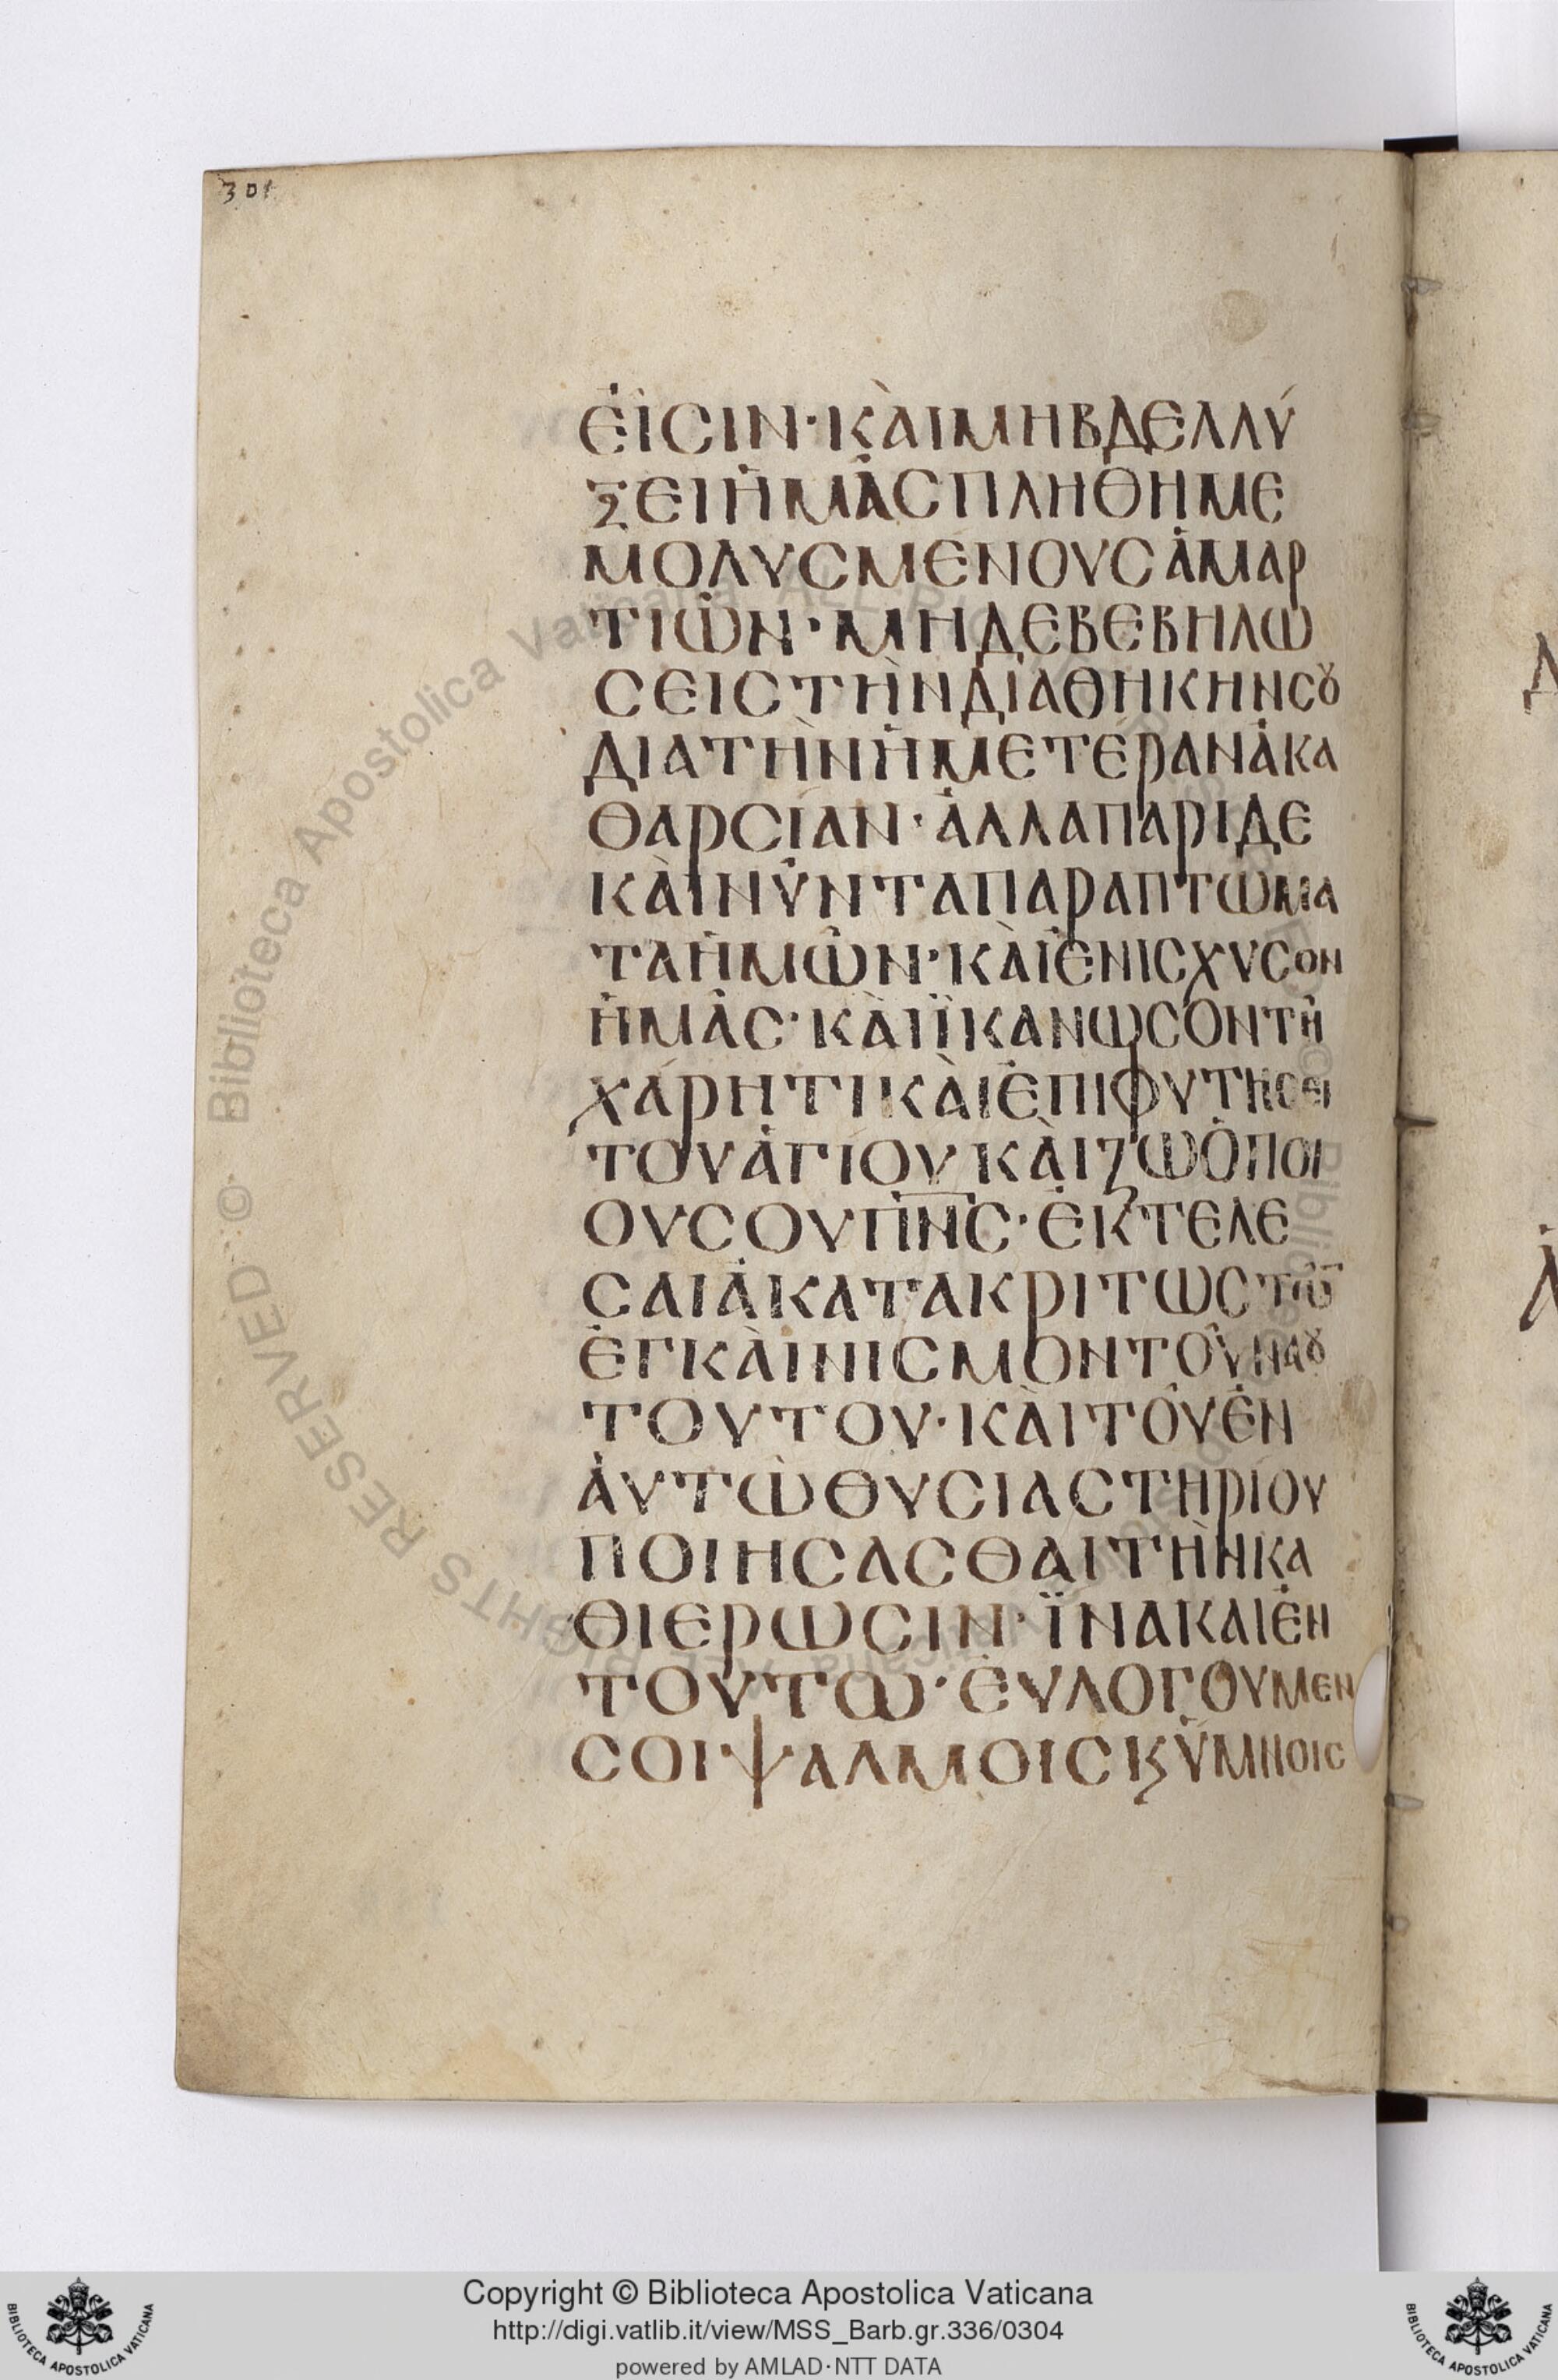 301
ἐὶσιν·κὰιμηβδελλύ
ξειἡμᾶσπληθημε
μολυσμένουσἁμαρ
τιῶν·μηδεβεβηλω
σειστὴνδιαθήκηνσȣ
διατὴνἡμετέρανἀκα
θαρσίαν·ἀλλαπαριδε
κὰινῦνταπαραπτωμα
ταἡμῶν·κὰιἐνισχυσον
ἡμᾶσ·κὰιϊκανωσοντῆ
χάρητικὰιἐπιφυτησει
τουἁγίουκὰιζωὁποι
ουσουπν̅σ̅·ἐκτελε
σαιἀκατακριτωστῶ
ἐγκὰινισμοντοῦναȣ
τουτου·κὰιτοῦἐν
ἀυτῶθυσιαστηρίου
ποιησασθαιτὴνκα
θιερωσιν·ϊνακαιἐν
τουτω·ἐυλογουμεν
σοι·ψαλμοισϗὕμνοισ
© Biblioteca Apostolica Vaticana ALL RIGHTS RESERVED
Copyright © Biblioteca Apostolica Vaticana
http://digi.vatlib.it/view/MSS_Barb.gr.336/0304
powered by AMLAD·NTT DATA
BIBLIOTECA APOSTOLICA VATICANA
BIBLIOTECA APOSTOLICA VATICANA